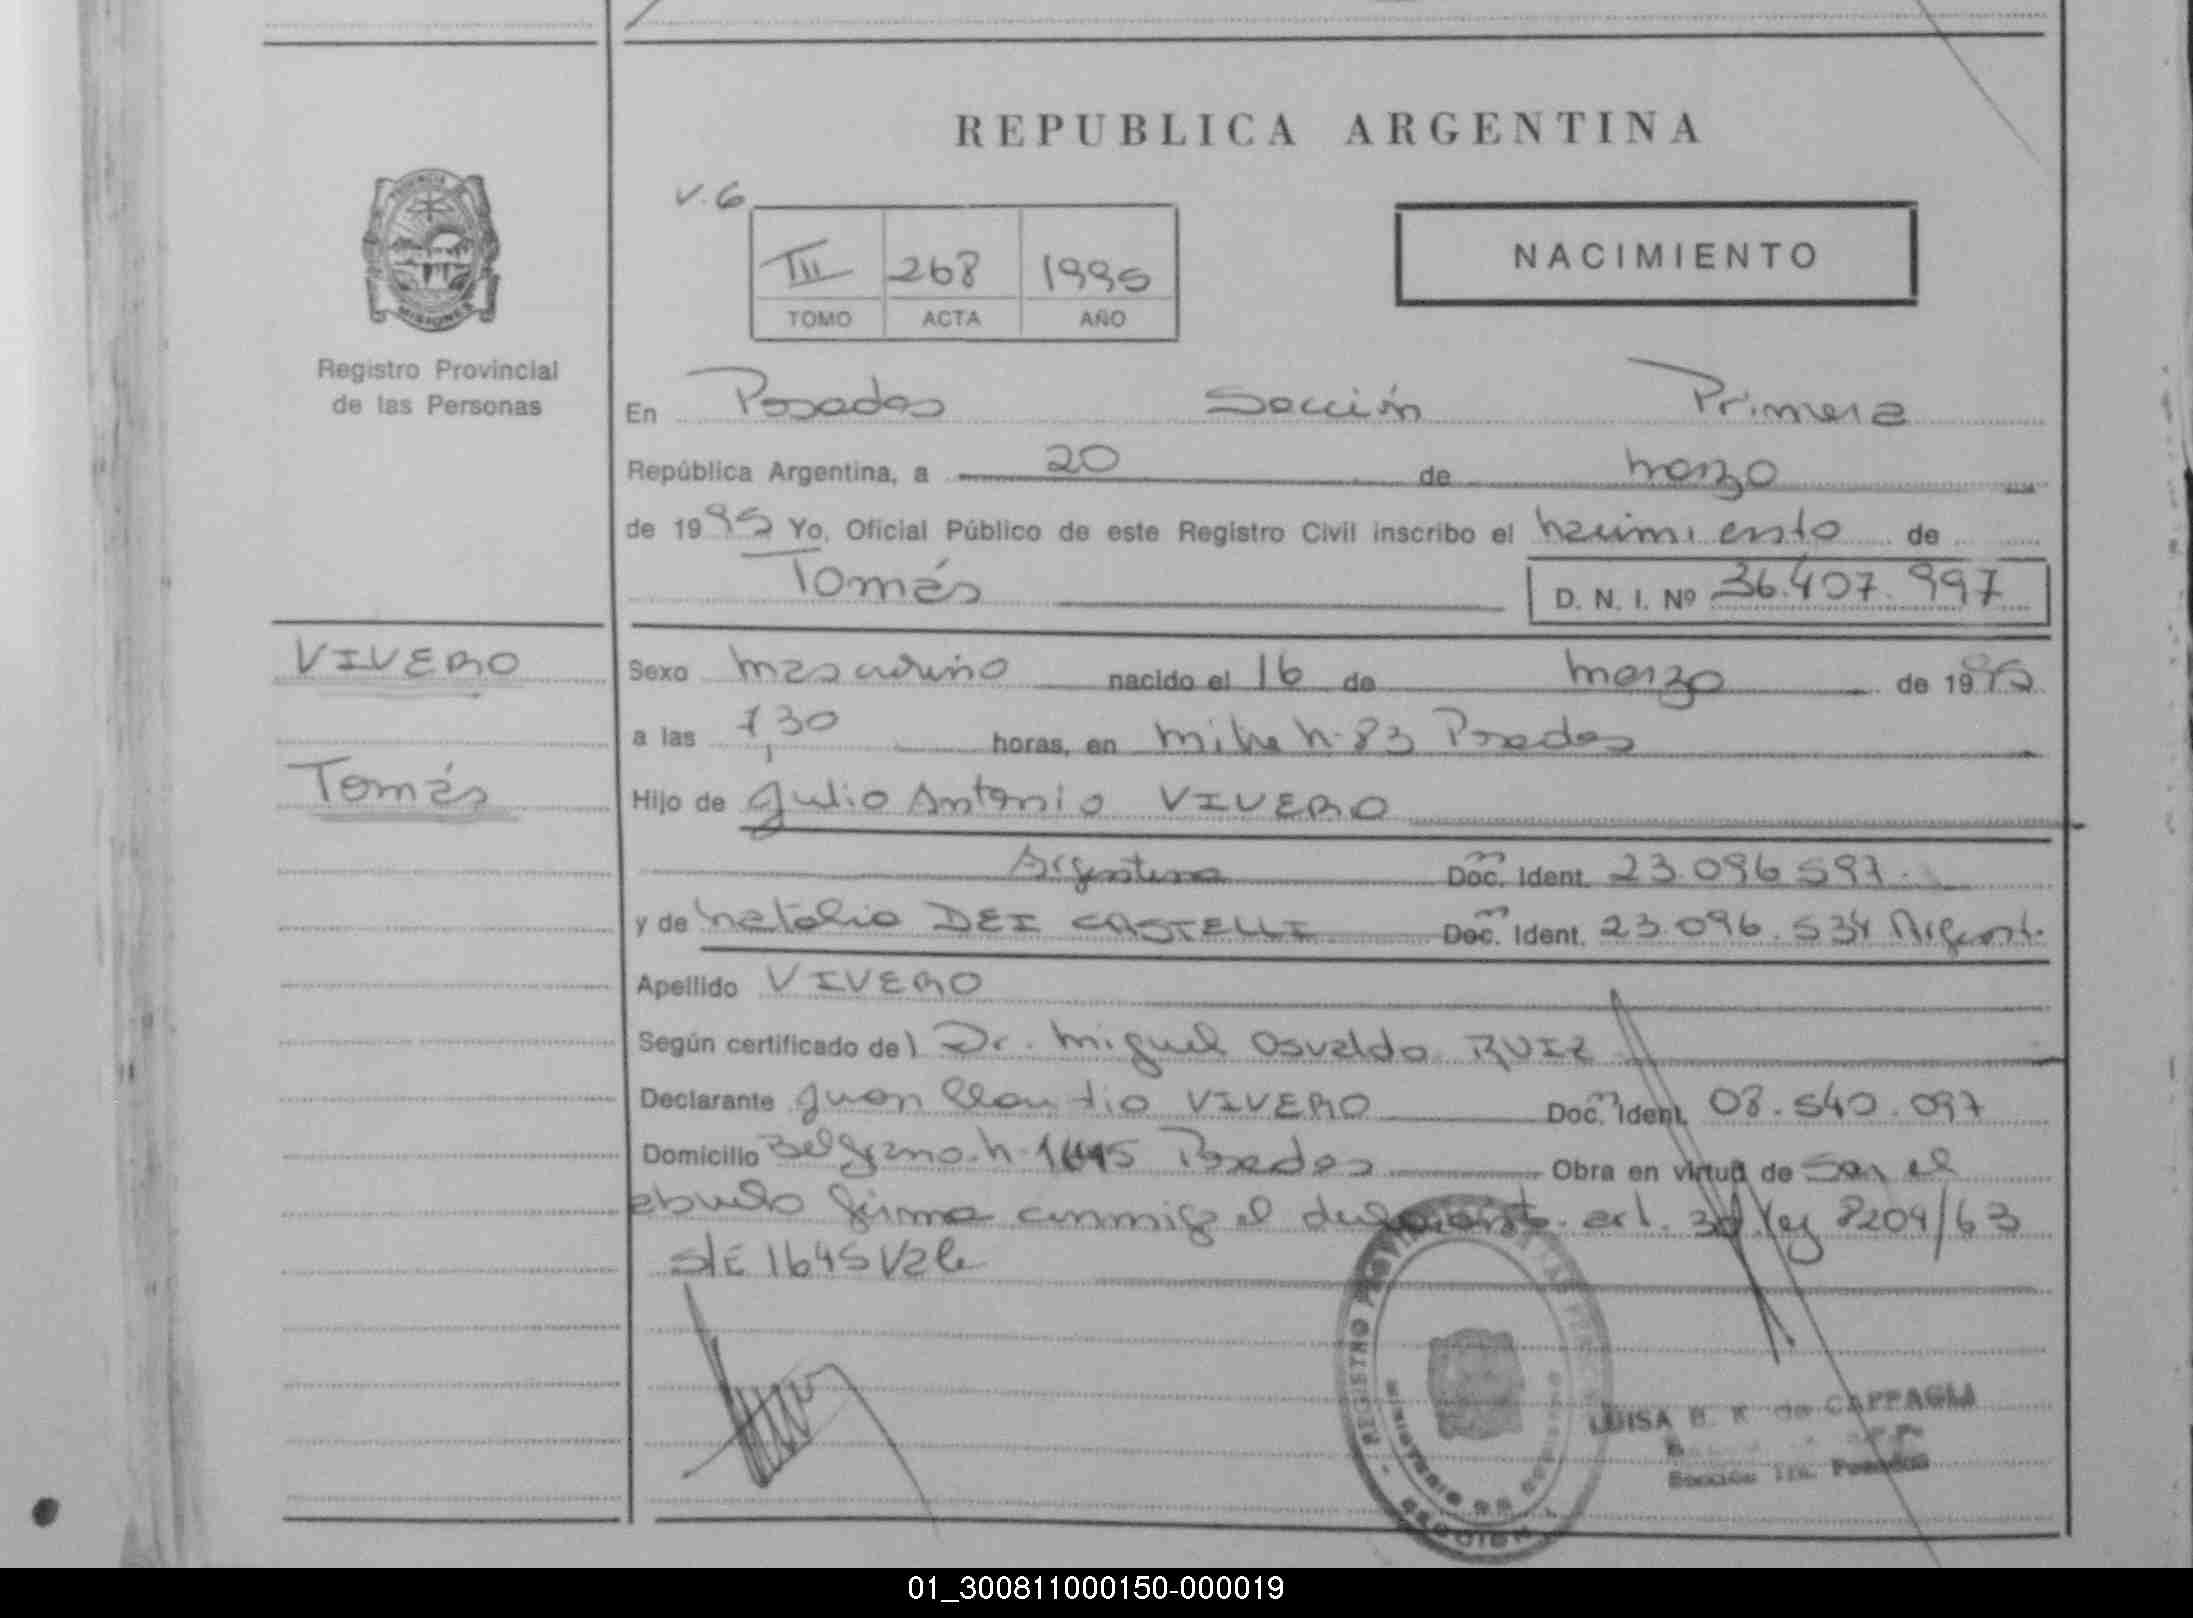 REPUBLICA ARGENTINA
V. 6
III 268 1995
TOMO ACTA AÑO
NACIMIENTO
MISIONES
Registro Provincial
de las Personas
En Posadas Sección Primera
República Argentina, a 20 de marzo
de 1995 Yo, Oficial Público de este Registro Civil inscribo el nacimiento de
Tomás D. N. I. Nº 36.407.997
VIVERO
Tomás
Sexo masculino nacido el 16 de marzo de 1995
a las 7,30 horas, en Posadas
Hijo de Julio Antonio VIVERO
Argentino Doc. Ident. 23.096.597
y de Natalia DEI CASTELLI Doc. Ident. 23.096.534 Argent.
Apellido VIVERO
Según certificado del Dr. Miguel Osvaldo RUIZ
Declarante Juan Claudio VIVERO Doc. Ident. 08.540.097
Domicilio Belgrano N. Posadas Obra en virtud de Ser el
abuelo firma conmigo el declarante. art. 30 ley 8204/63
S/E 1645 Vale
REGISTRO PROVINCIAL DE LAS
MINISTERIO DE GOBIERNO
SECCION 1
LUISA B. K. de CAFFAGLI
Sección 1ra. Posadas
01_300811000150-000019